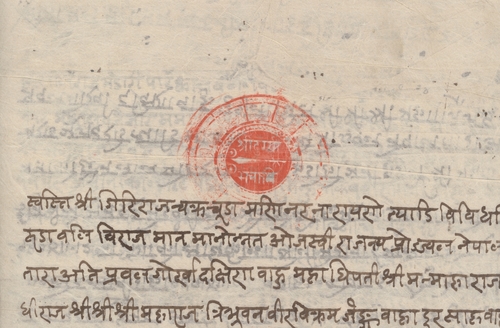 श्री ३ सर्कार
नेपाल
स्वस्ति श्री गिरिराजचक्रचूडामणिनरनारायणेत्यादि विविधवि
रुदावलि विराजमान मानोन्नत ओजस्वी राजन्य प्रोज्वल नेपाल
तारा अति प्रवल गोर्खा दक्षिण वाहु महाधिपती श्री मन्महाराजा
धीराज श्री श्री श्री महाराज त्रिभूवन वीरविक्रम जंङ्ग वाहादुर साह